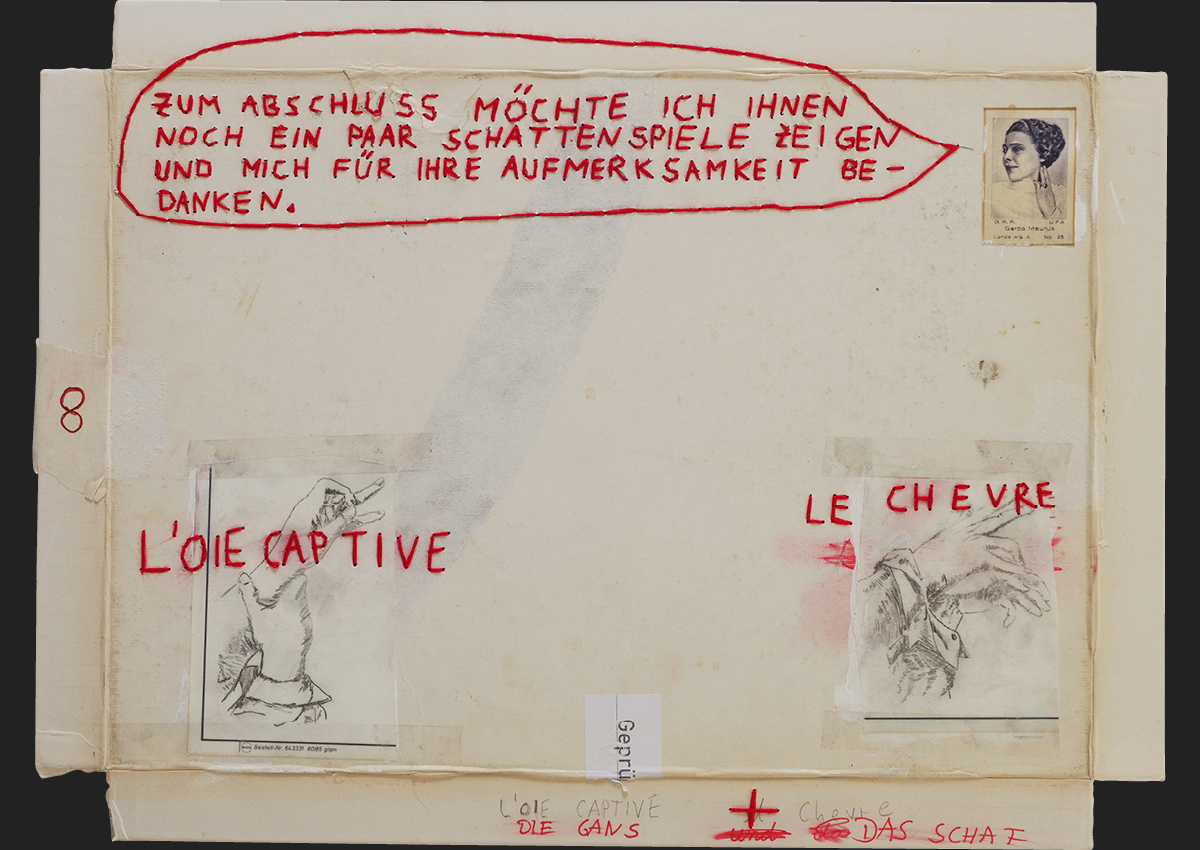 ZUM ABSCHLUSS MÖCHTE ICH IHNEN
NOCH EIN PAAR SCHATTENSPIELE ZEIGEN
UND MICH FÜR IHRE AUFMERKSAMKEIT BE-
DANKEN.
D.R.P. UFA
Gerda Maurus
No. 25
8
L'OIE CAPTIVE
LE CHEVRE
Bestell-Nr. 643331 80185 glam
Geprü
L'OIE CAPTIVE + Chevre
DIE GANS und DAS SCHAF